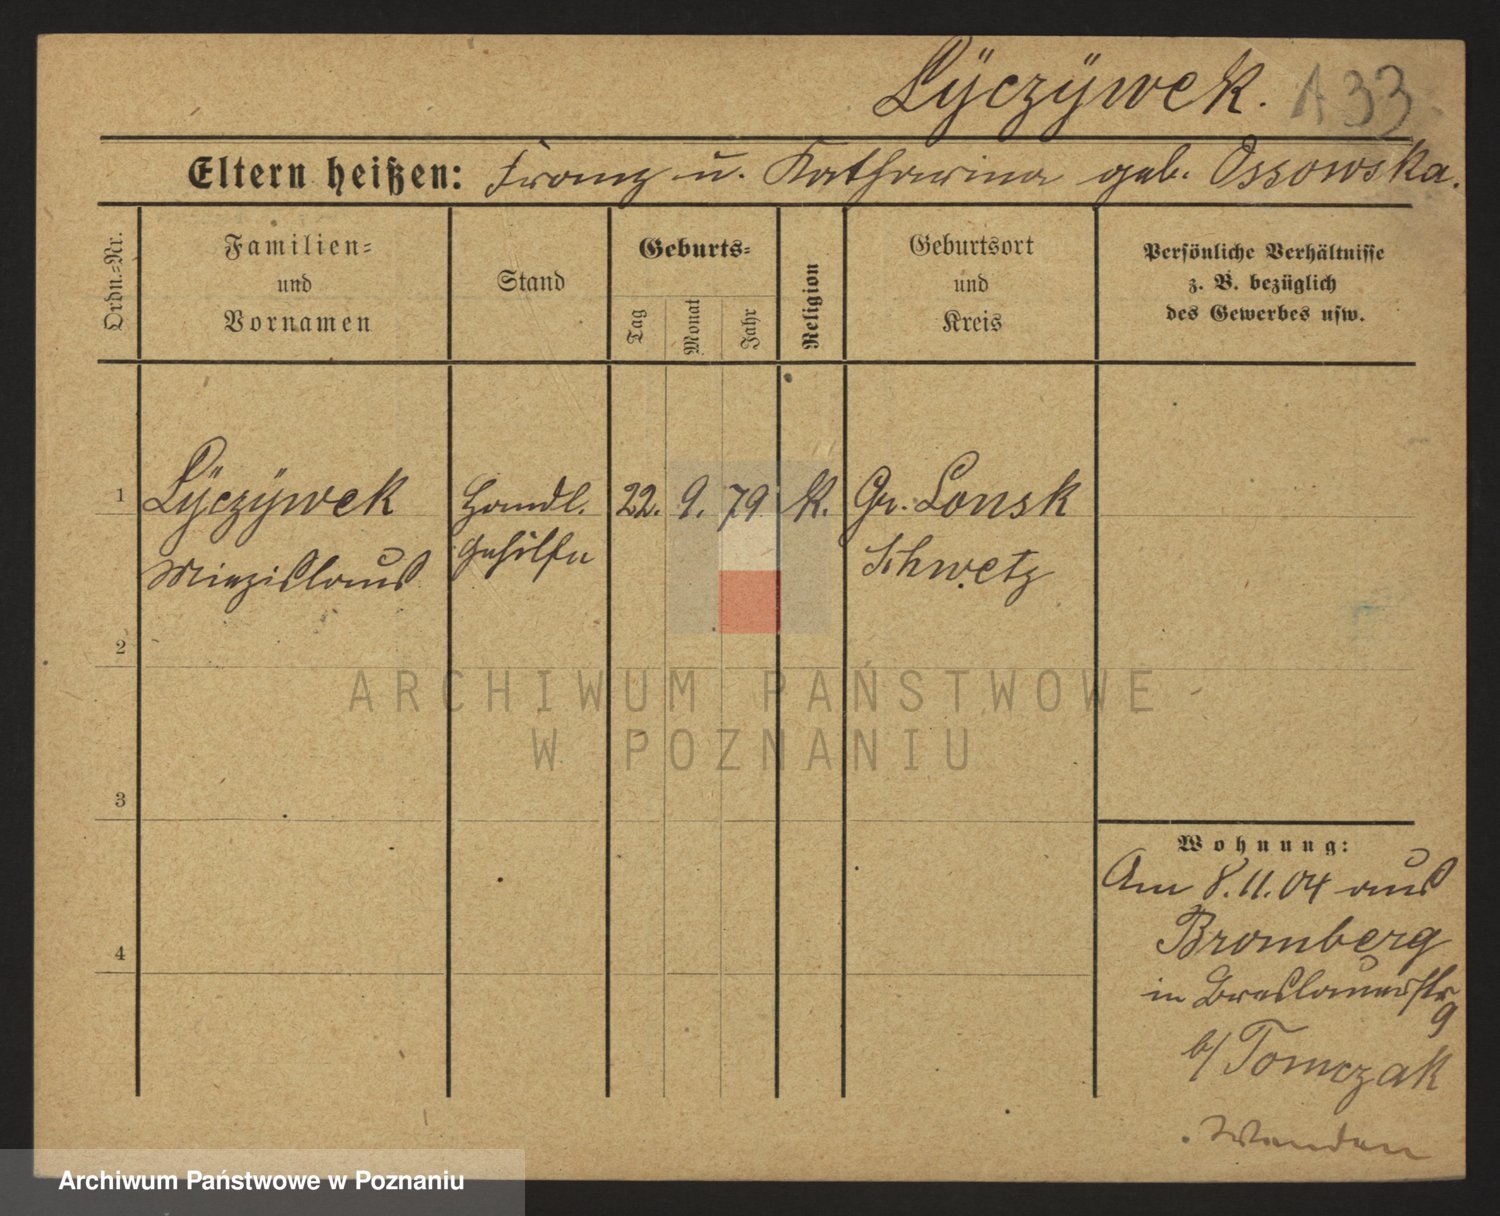 Lÿczÿwek. A 33
Eltern heißen: Franz u. Katharina geb. Ossowska.
Ordn.=Nr.
Familien=
und
Vornamen
Stand
Geburts=
Tag
Monat
Jahr
Religion
Geburtsort
und
Kreis
Persönliche Verhältnisse
z. B. bezüglich
des Gewerbes usw.
1 Lÿczÿwek Handl. 22. 9. 79 K. Gr. Lonsk
Miezislaus Gehilfe Schwetz
2
3
4
Wohnung:
Am 8.11.04 aus
Bromberg
in Breslauerstr
9
b/ Tomczak
ARCHIWUM PAŃSTWOWE
W POZNANIU
Archiwum Państwowe w Poznaniu